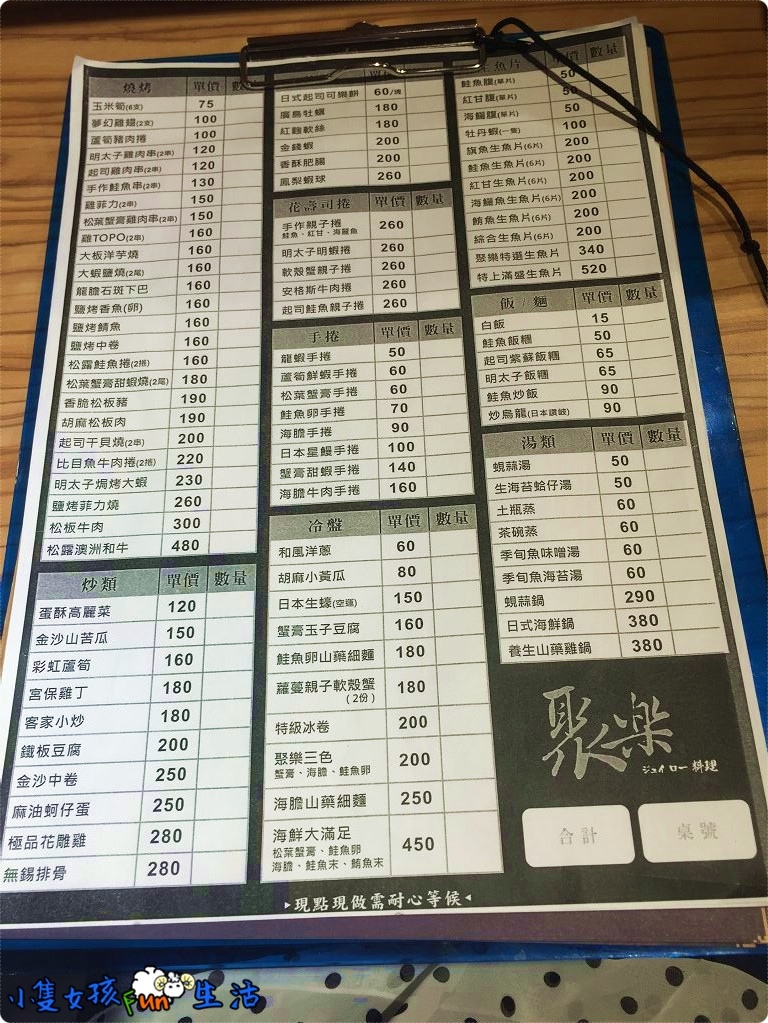 燒烤 單價 數
玉米筍(6支) 75
夢幻雞翅(2支) 100
蘆筍豬肉捲 100
明太子雞肉串(2串) 120
起司雞肉串(2串) 120
手作鮭魚串(2串) 130
雞菲力(2串) 150
松葉蟹膏雞肉串(2串) 150
雞TOPO(2串) 160
大板洋芋燒 160
大蝦鹽燒(2尾) 160
龍膽石斑下巴 160
鹽烤香魚(卵) 160
鹽烤鯖魚 160
鹽烤中卷 160
松露鮭魚捲(2捲) 160
松葉蟹膏甜蝦燒(2尾) 180
香脆松板豬 190
胡麻松板肉 190
起司干貝燒(2串) 200
比目魚牛肉捲(2捲) 220
明太子焗烤大蝦 230
鹽烤菲力燒 260
松板牛肉 300
松露澳洲和牛 480
炒類 單價 數量
蛋酥高麗菜 120
金沙山苦瓜 150
彩虹蘆筍 160
宮保雞丁 180
客家小炒 180
鐵板豆腐 200
金沙中卷 250
麻油蚵仔蛋 250
極品花雕雞 280
無錫排骨 280
日式起司可樂餅 60/塊
廣島牡蠣 180
紅麴軟絲 180
金錢蝦 200
香酥肥腸 200
鳳梨蝦球 260
花壽司捲 單價 數量
手作親子捲 260
鮭魚、紅甘、海鱺魚
明太子明蝦捲 260
軟殼蟹親子捲 260
安格斯牛肉捲 260
起司鮭魚親子捲 260
手捲 單價 數量
龍蝦手捲 50
蘆筍鮮蝦手捲 60
松葉蟹膏手捲 60
鮭魚卵手捲 70
海膽手捲 90
日本星鰻手捲 100
蟹膏甜蝦手捲 140
海膽牛肉手捲 160
冷盤 單價 數量
和風洋蔥 60
胡麻小黃瓜 80
日本生蠔(空運) 150
蟹膏玉子豆腐 160
鮭魚卵山藥細麵 180
蘿蔓親子軟殼蟹 180
(2份)
特級冰卷 200
聚樂三色 200
蟹膏、海膽、鮭魚卵
海膽山藥細麵 250
海鮮大滿足 450
松葉蟹膏、鮭魚卵
海膽、鮭魚末、鮪魚末
生魚片 單價 數量
鮭魚腹(單片) 50
紅甘腹(單片) 50
海鱺腹(單片) 50
牡丹蝦(一隻) 100
旗魚生魚片(6片) 200
鮭魚生魚片(6片) 200
紅甘生魚片(6片) 200
海鱺魚生魚片(6片) 200
鮪魚生魚片(6片) 200
綜合生魚片(6片) 200
聚樂特選生魚片 340
特上滿盛生魚片 520
飯/麵 單價 數量
白飯 15
鮭魚飯糰 50
起司紫蘇飯糰 65
明太子飯糰 65
鮭魚炒飯 90
炒烏龍(日本讚岐) 90
湯類 單價 數量
蜆蒜湯 50
生海苔蛤仔湯 50
土瓶蒸 60
茶碗蒸 60
季旬魚味噌湯 60
季旬魚海苔湯 60
蜆蒜鍋 290
日式海鮮鍋 380
養生山藥雞鍋 380
聚樂
ジュイロー 料理
合計 桌號
▸現點現做需耐心等候◂
小隻女孩Fun生活